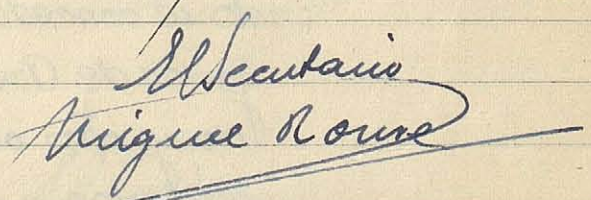 El Secretario
Miguel Roure